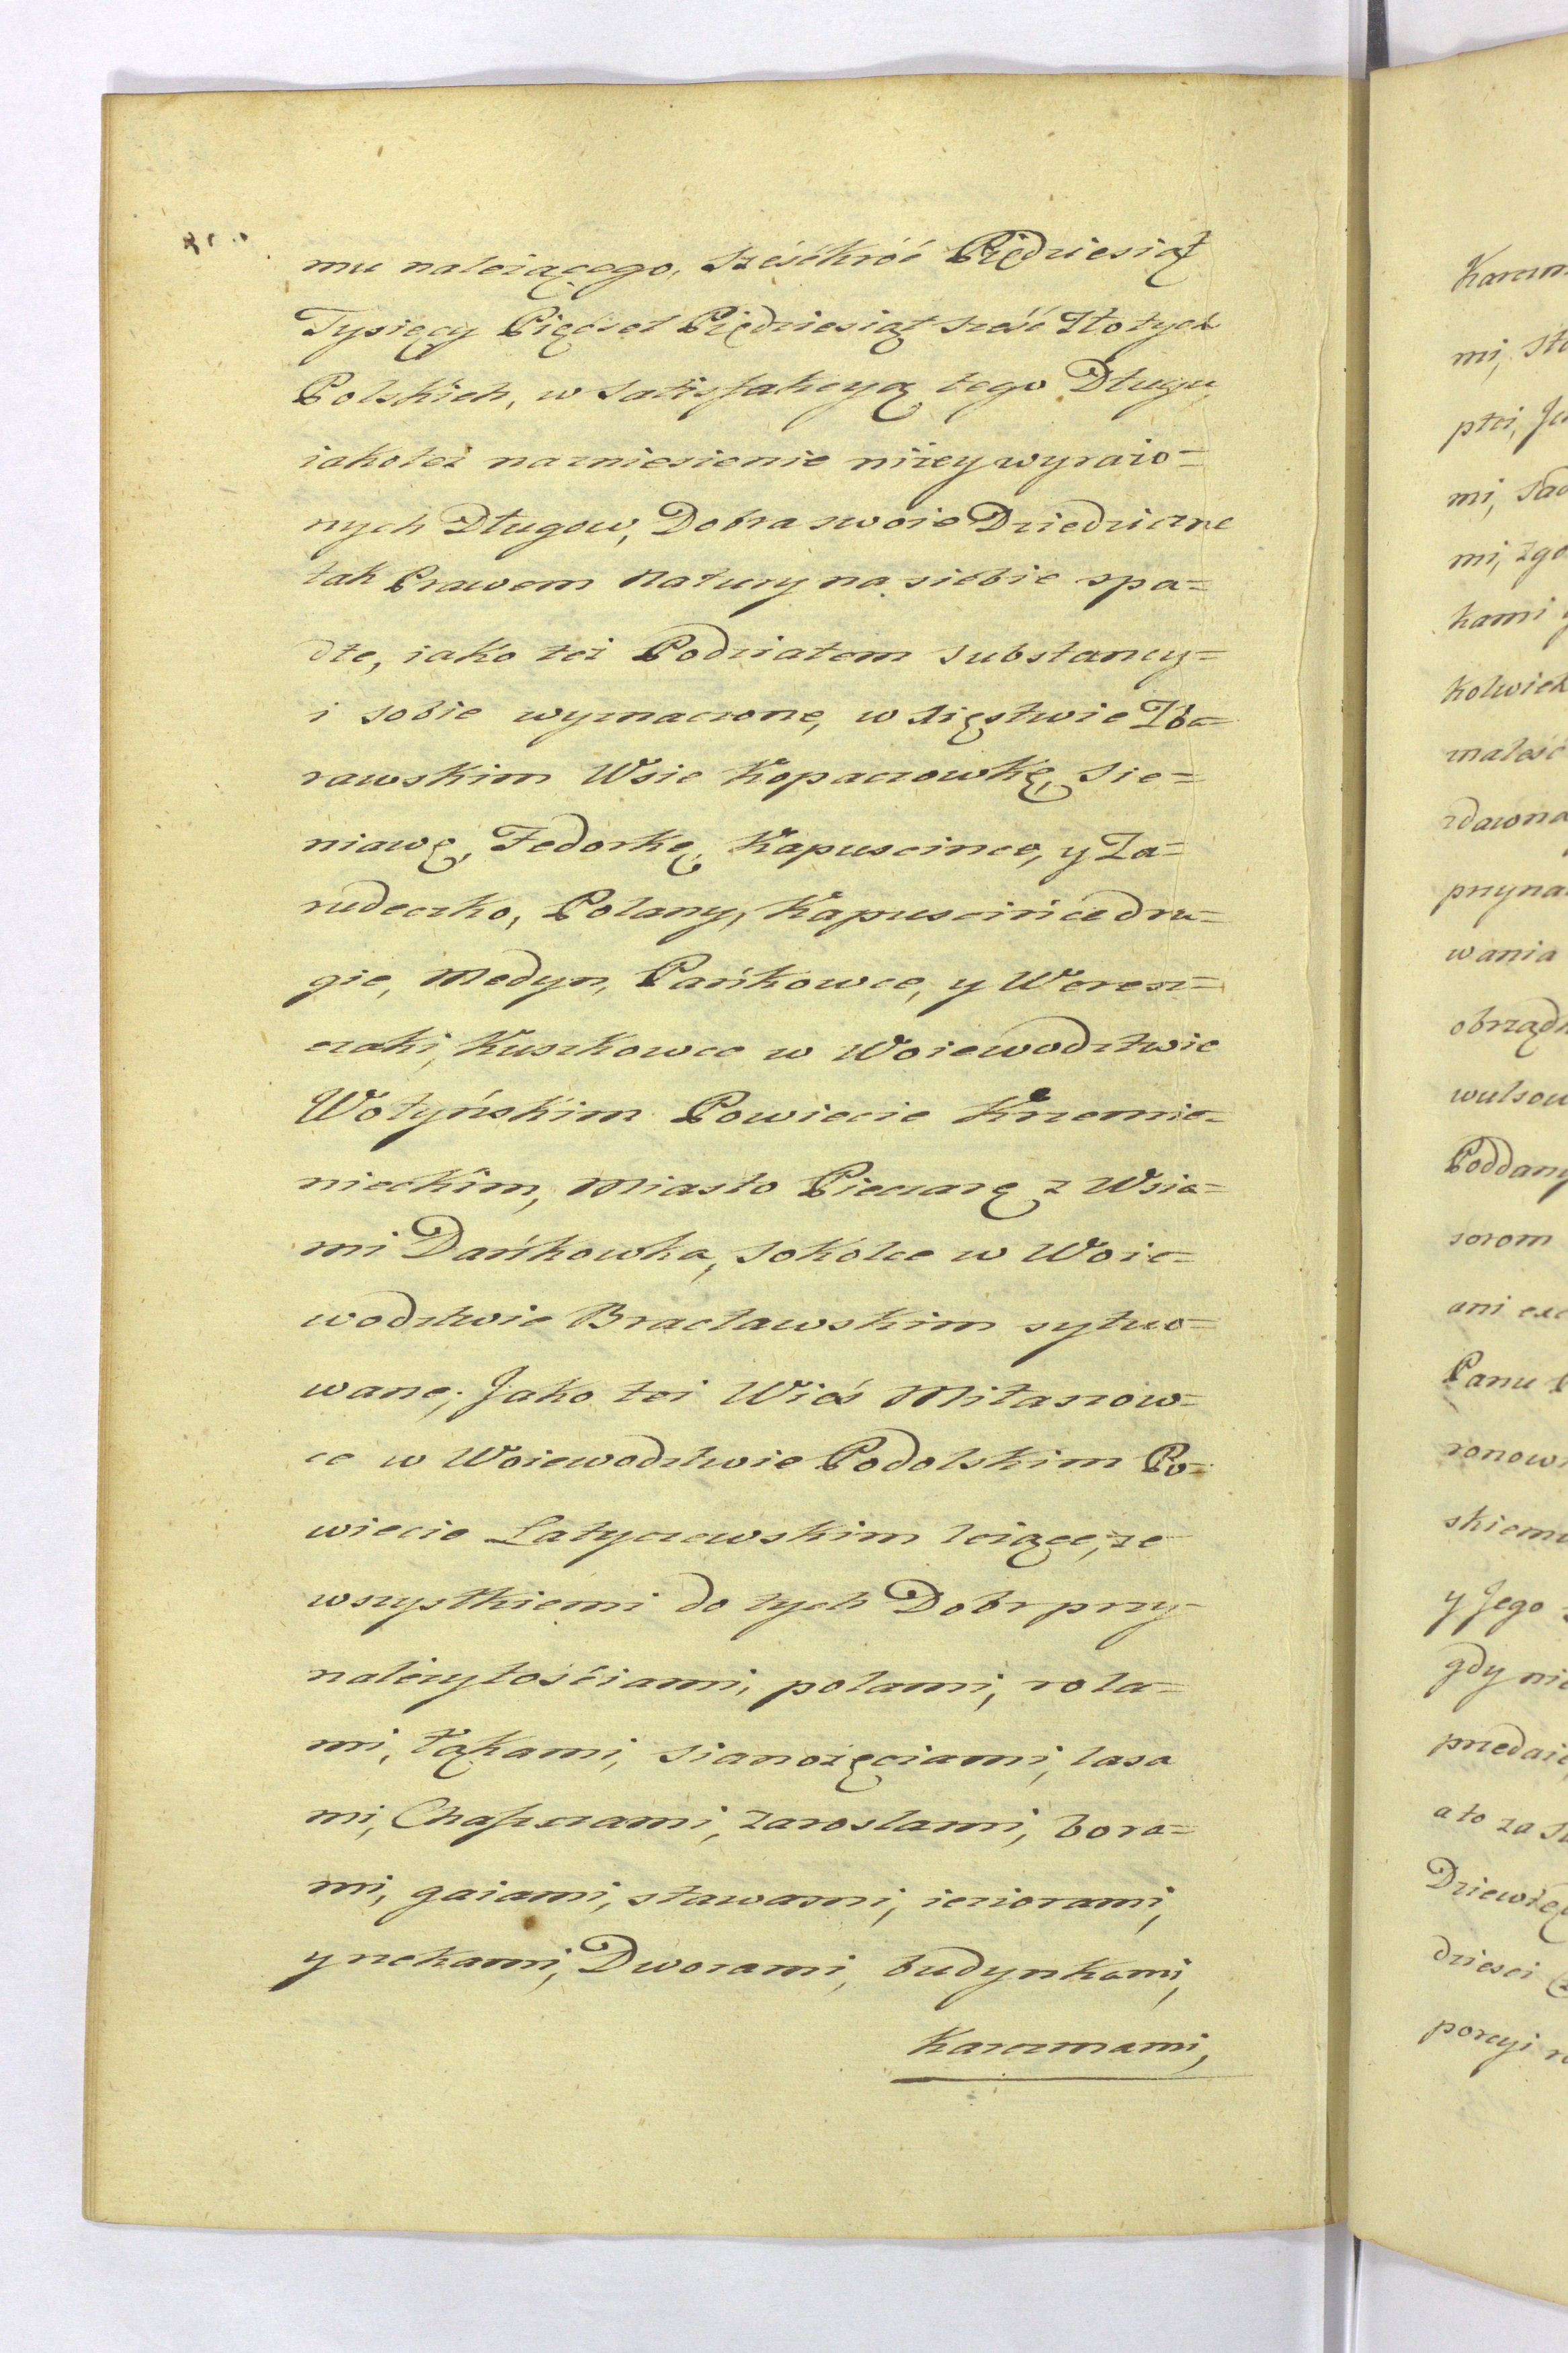 mu należącego, Sześćkróć Piędziesiąt
Tysięcy Pięćset Piędziesiąt sześć Złotych
Polskich, w Satisfakcyą tego Długu,
iakoteż na zniesienie niżey wyrażo=
nych Długow, Dobra swoie Dziedziczne
tak Prawem Natury na siebie spa=
dłe, iako też Podziałem substancy=
i sobie wyznaczone, w Xięstwie Zba=
rawskim Wsie Kopaczowkę, Sie=
niawę, Fedorkę, Kapuscince, y Za=
rudeczko, Polany, Kapuscińce dru=
gie, Medyn, Pańkowce, y Weresz=
czaki, Kuszkowce w Woiewodztwie
Wołyńskim Powiecie Krzemie=
nieckim, Miasto Pieczarę z Wsia=
mi Dańkowka, Sokolce w Woie=
wodztwie Bracławskim sytuo=
wane; Jako też Wieś Mitaszow=
ce w Woiewodztwie Podolskim Po=
wiecie Latyczewskim leżące, ze
wszystkiemi do tych Dobr przy=
należytościami, polami, rola=
mi, łąkami, sianożęciami, lasa
mi, Chaszczami, zaroslami, bora=
mi, gaiami, stawami, ieziorami,
y rzekami, Dworami, budynkami,
Karczmami,
Karczm
mi, sta
płci, Je
mi, Sad
mi, zgo
kami y
kolwiek
znaleść
zdawna
przyna
wania
obrządk
wulsow
Poddany
sorom
ani exc
Panu P
ronow
skiemu
y Jego
gdy nie
przedaie
a to za Su
Dziewię
dziesci
porcyi